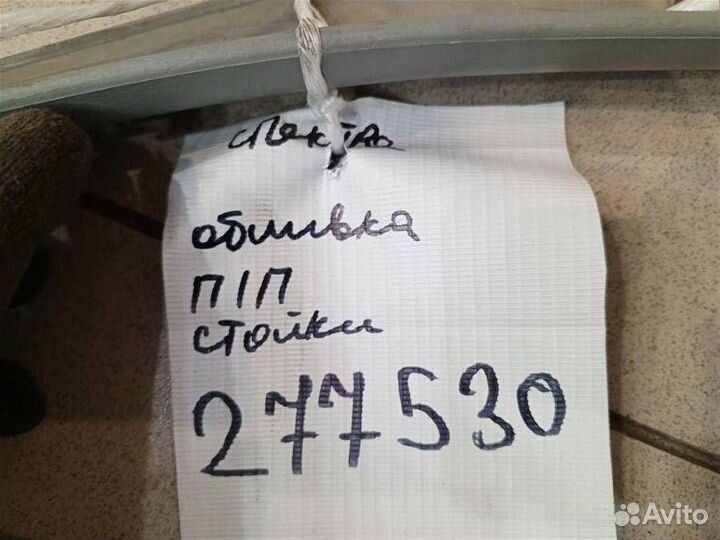 спектра
обшивка
П/П
стойки
277530
Avito